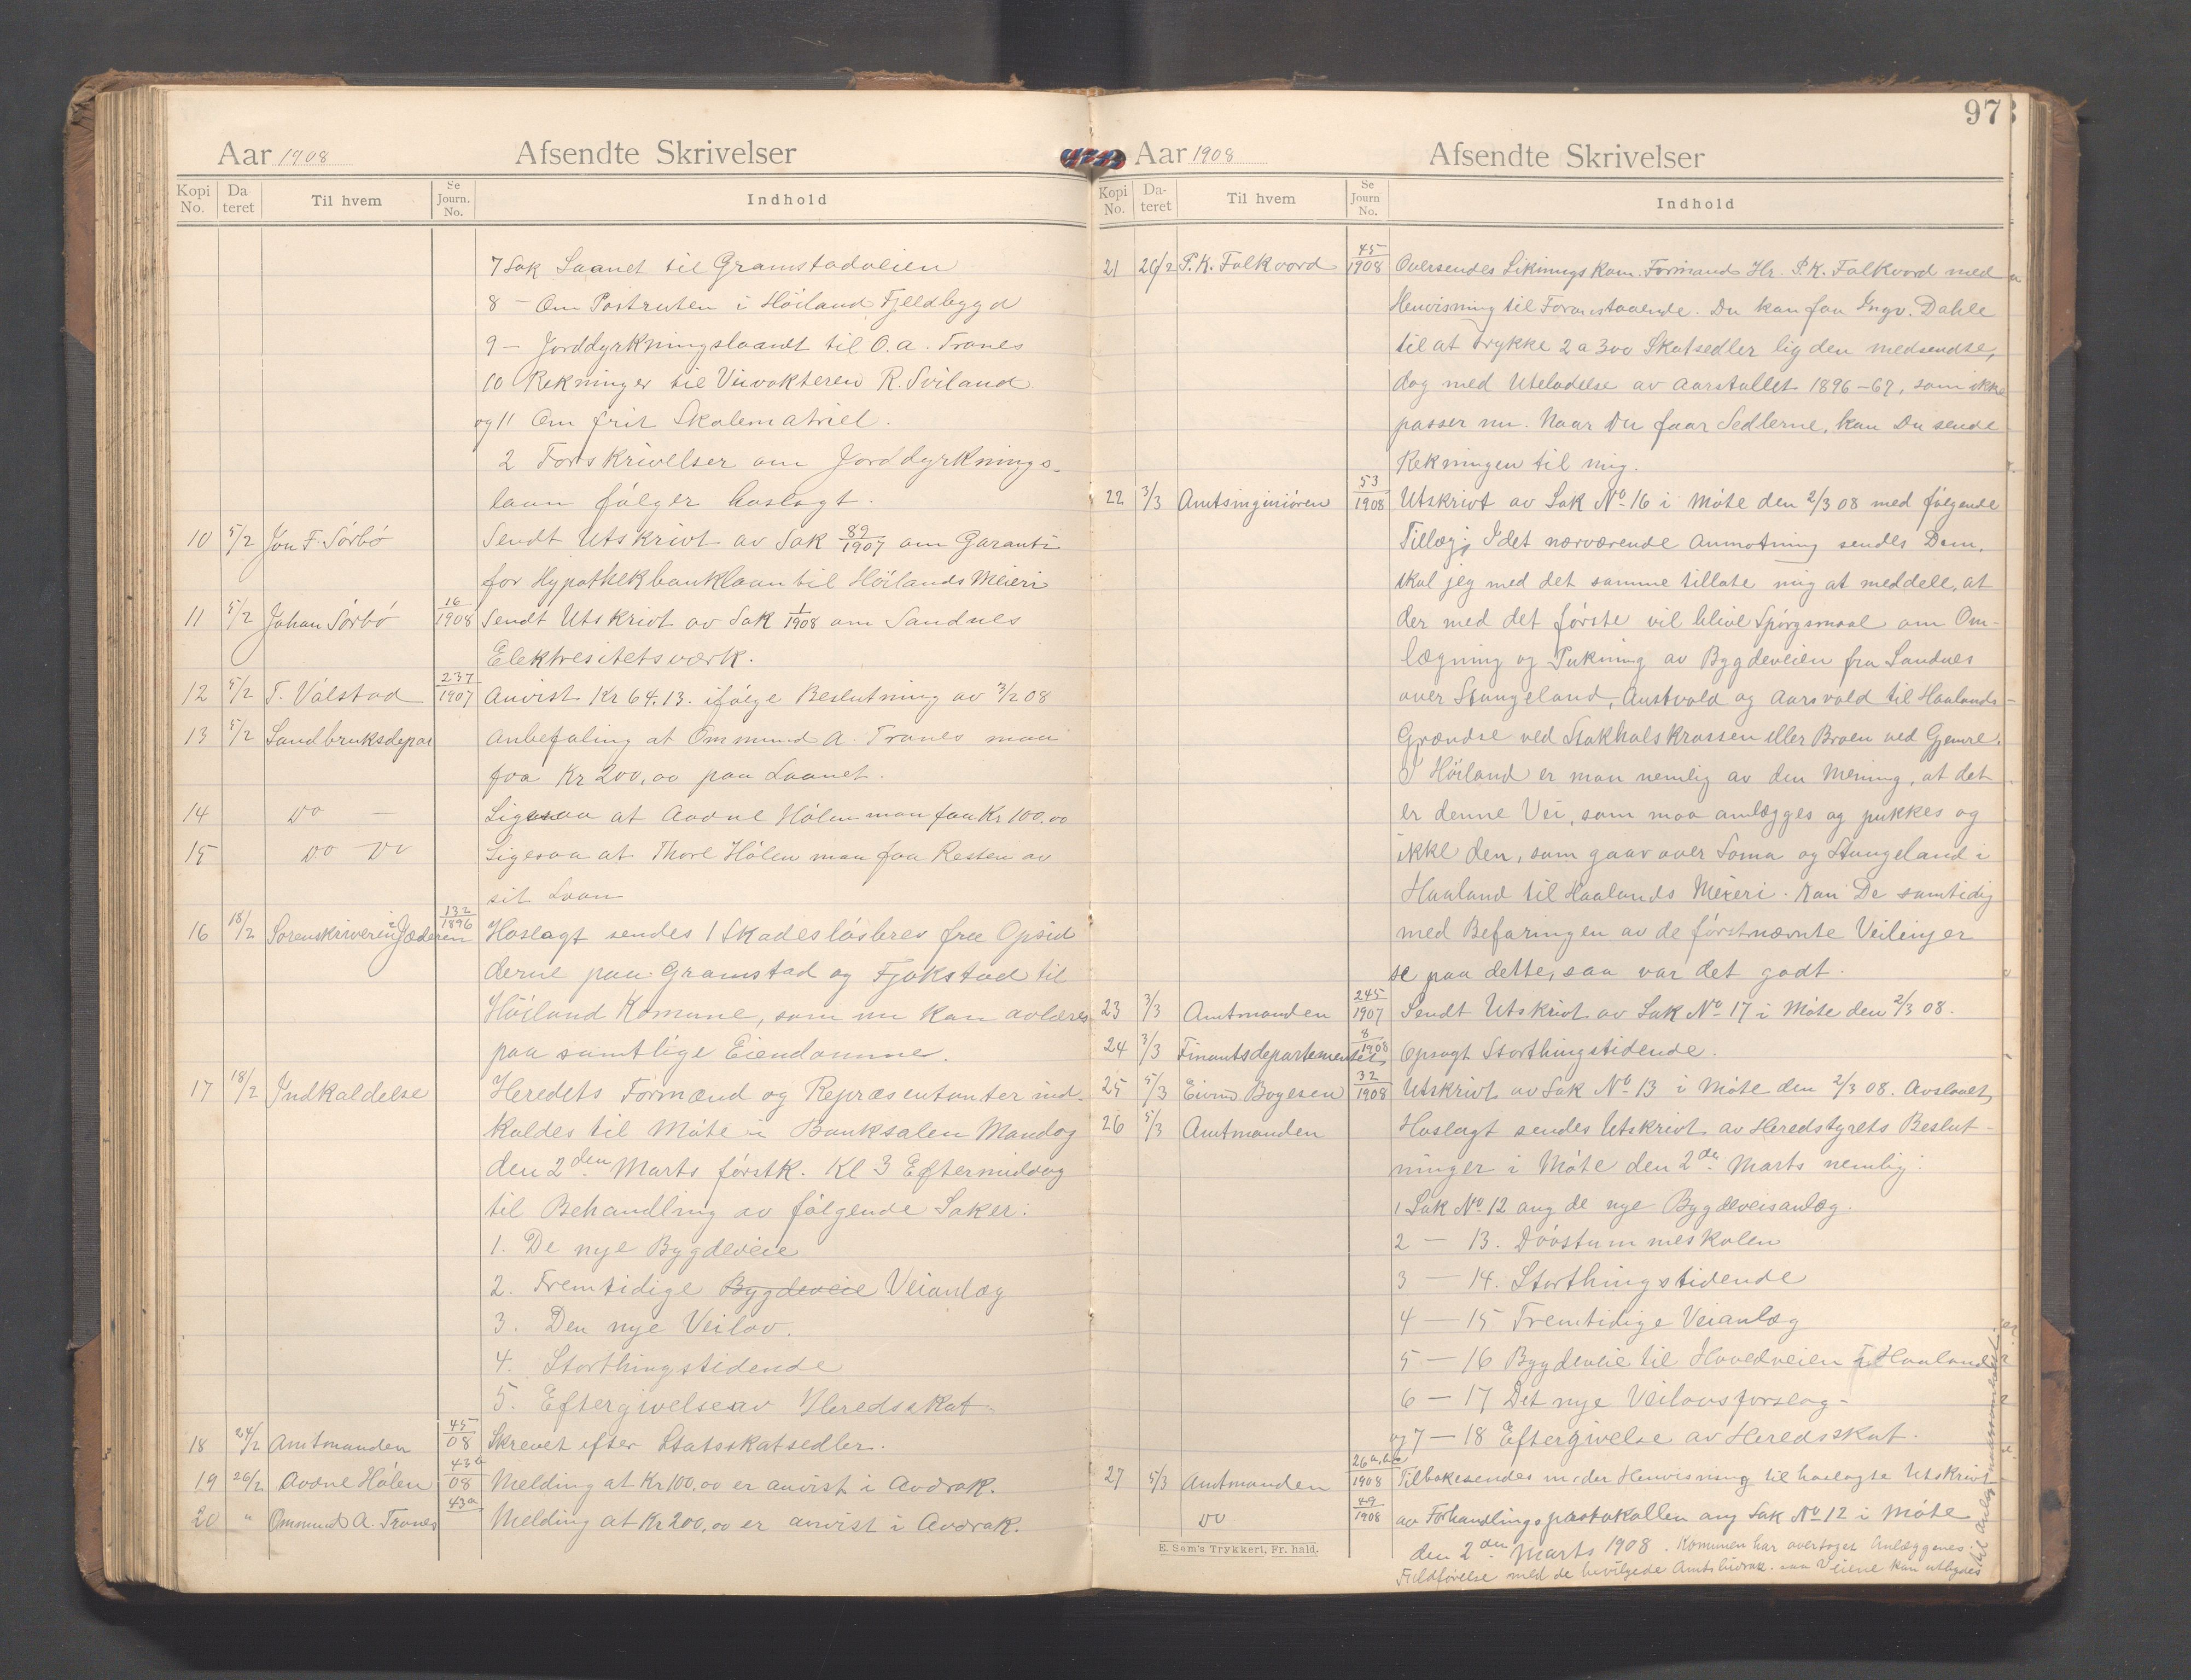 Aar 1908 Afsendte Skrivelser
Kopi No. Da teret Til hvem Se Journ. No. Indhold
7 Sak Laanet til Gramstadveien
8 — Om Postruten i Höiland Fjeldbygd
9 — Jorddyrkningslaanet til O. A. Tranes
10 Rekninger til Veivokteren R. Sviland
og 11 Om frit Skolematriel.
2 Forskrivelser om Jorddyrknings-
laan fölger haslagt.
10 5/2 Jon F. Sörbö Sendt Utskrivt av Sak 89/1907 om Garanti
for Hypothekbanklaan til Höilands Meieri
11 5/2 Johan Sörbö 16/1908 Sendt Utskrivt av Sak 1/1908 om Sandnes
Elektresitetsværk.
12 5/2 T. Válstad 237/1907 Anvist Kr 64.13. ifölge Beslutning av 3/2 08
13 5/2 Landbruksdepar Anbefaling at Ommund A. Tranes maa
faa Kr 200,00 paa Laanet.
14 Do — Ligesaa at Aadne Hölen maa faa Kr 100.00
15 Do Do Ligesaa at Thore Hölen maa faa Resten av
sit Laan
16 18/2 Sorenskriveren i Jæderen 132/1896 Haslagt sendes 1 Skadeslösbrev fra Opsid
derne paa Gramstad og Fjokstad til
Höiland Komune, som nu kan avlæses
paa samtlige Eiendomme.
17 18/2 Indkaldelse Heredets Formænd og Repræsentanter ind-
kaldes til Möte i Banksalen Mandag
den 2den Marts förstk. Kl 3 Eftermiddag
til Behandling av fölgende Saker:
1. De nye Bygdeveie
2. Fremtidige Bygdeveie Veianlæg
3. Den nye Veilov.
4. Storthingstidende
5. Eftergivelse av Heredsskat
18 24/2 Amtmanden 45/08 Skrevet efter Statsskatsedler.
19 26/2 Aadne Hölen 43a/08 Melding at Kr 100,00 er anvist i Avdrak.
20 " Ommund A. Tranes 43a Melding at Kr 200,00 er anvist i Avdrak.
97
Aar 1908 Afsendte Skrivelser
Kopi No. Da- teret Til hvem Se Journ No. Indhold
21 26/2 P. K. Falkvard 45/1908 Oversendes Likningskom. Formand Hr. P. K. Falkvard med
Henvisning til Foranstaaende. Du kan faa Ingv. Dahle
til at trykke 2 a 300 Skatsedler lig den medsendte,
dog med Uteladelse av Aarstallet 1896-67, som ikke
passer nu. Naar Du faar Sedlerne, kan Du sende
Rekningen til mig.
22 3/3 Amtsingeniören 53/1908 Utskrivt av Sak No 16 i Möte den 2/3 08 med fölgende
Tillæg; Idet nærværende Anmotning sendes Dem,
skal jeg med det samme tillate mig at meddele, at
der med det förste vil blive Spörgsmaal om Om-
lægning og Pukning av Bygdeveien fra Sandnes
over Stangeland, Austvold og Aarsvold til Haalands-
Grændse ved Stokhalskrossen eller Broen ved Gjemre.
I Höiland er man nemlig av den Mening, at det
er denne Vei, som maa omlægges og pukkes og
ikke den, som gaar over Soma og Stangeland i
Haaland til Haalands Meieri. Kan De samtidig
med Befaringen av de förstnævnte Veilinjer
se paa dette, saa var det godt.
23 3/3 Amtmanden 245/1907 Sendt Utskrivt av Sak No 17 i Möte den 2/3 08.
24 3/3 Finantsdepartementet 8/1908 Opsagt Storthingstidende.
25 5/3 Eivind Bogesen 32/1908 Utskrivt av Sak No 13 i Möte den 2/3 08. Avslaaet
26 5/3 Amtmanden Haslagt sendes Utskrivt av Heredstyrets Beslut-
ninger i Möte den 2den Marts nemlig:
1 Sak No 12 ang de nye Bygdeveisanlæg.
2 — 13. Dövstummeskolen
3 — 14. Storthingstidende
4 — 15 Fremtidige Veianlæg
5 — 16 Bygdeveie til Hovedveien i Haaland
6 — 17 Det nye Veilovsforslag-
og 7 — 18 Eftergivelse av Heredsskat.
27 5/3 Amtmanden 26a,b/1908 Tilbakesendes under Henvisning til haslagte Utskrivt
Do 49/1908 av Forhandlingsprotokollen ang Sak No 12 i Möte
den 2den Marts 1908. Komunen har overtaget Anlæggenes
Fuldförelse med de bevilgede Amtsbidrak. saa Veiene kan utlægges
E. Sem's Trykkeri, Fr. hald.